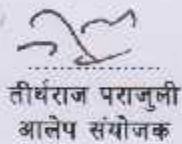 तीर्थराज पराजुली
आलेप संयोजक